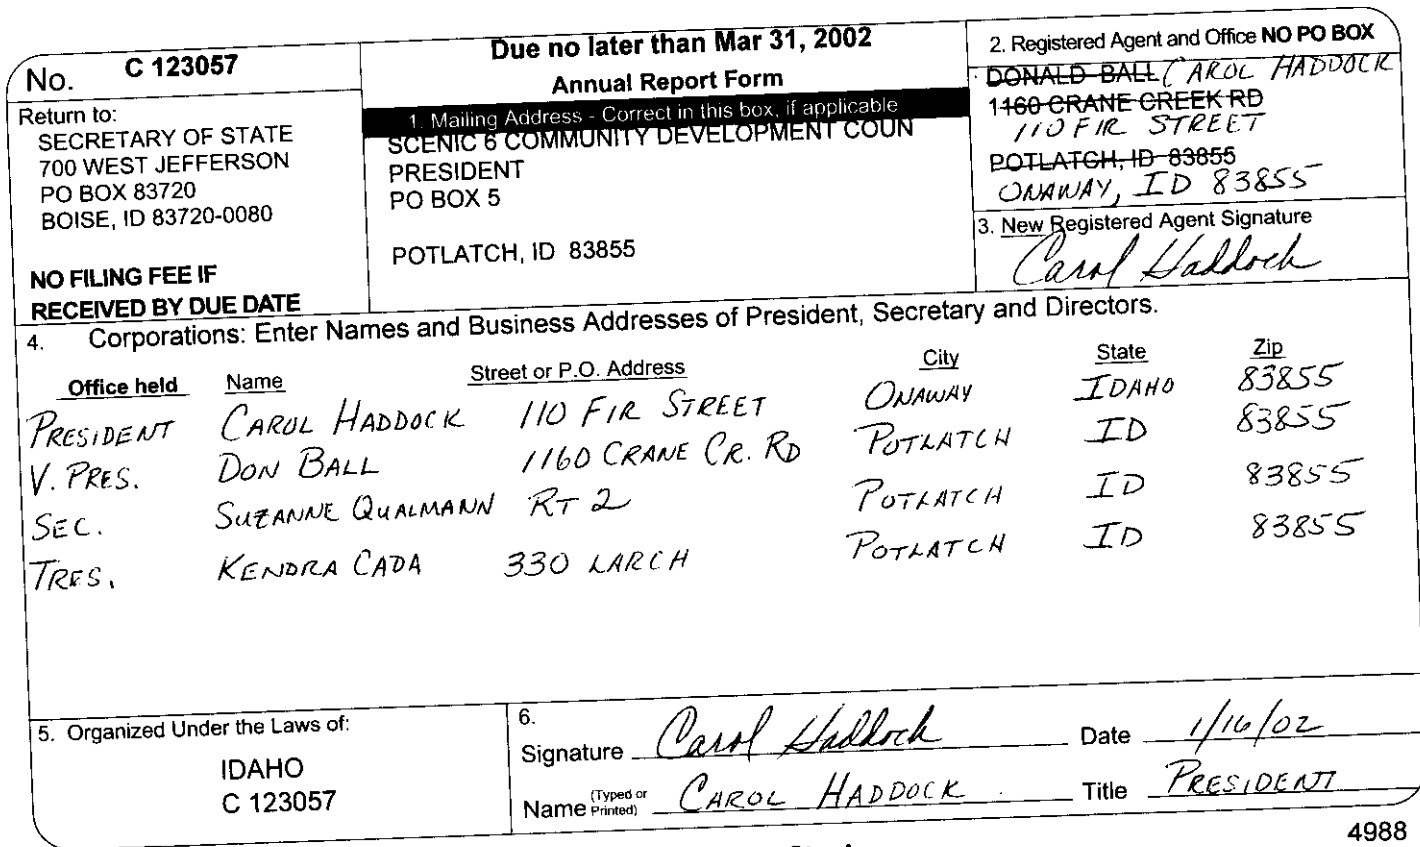 No. C 123057
Return to:
SECRETARY OF STATE
700 WEST JEFFERSON
PO BOX 83720
BOISE, ID 83720-0080
NO FILING FEE IF
RECEIVED BY DUE DATE
Due no later than Mar 31, 2002
Annual Report Form
1. Mailing Address - Correct in this box, if applicable
SCENIC 6 COMMUNITY DEVELOPMENT COUN
PRESIDENT
PO BOX 5
POTLATCH, ID 83855
2. Registered Agent and Office NO PO BOX
DONALD BALL CAROL HADDOCK
1160 CRANE CREEK RD
110 FIR STREET
POTLATCH, ID 83855
ONAWAY, ID 83855
3. New Registered Agent Signature
Carol Haddock
4. Corporations: Enter Names and Business Addresses of President, Secretary and Directors.
Office held Name Street or P.O. Address City State Zip
PRESIDENT CAROL HADDOCK 110 FIR STREET ONAWAY IDAHO 83855
V. PRES. DON BALL 1160 CRANE CR. RD POTLATCH ID 83855
SEC. SUZANNE QUALMANN RT 2 POTLATCH ID 83855
TRES. KENDRA CADA 330 LARCH POTLATCH ID 83855
5. Organized Under the Laws of:
IDAHO
C 123057
6.
Signature Carol Haddock Date 1/16/02
Name (Typed or Printed) CAROL HADDOCK Title PRESIDENT
4988